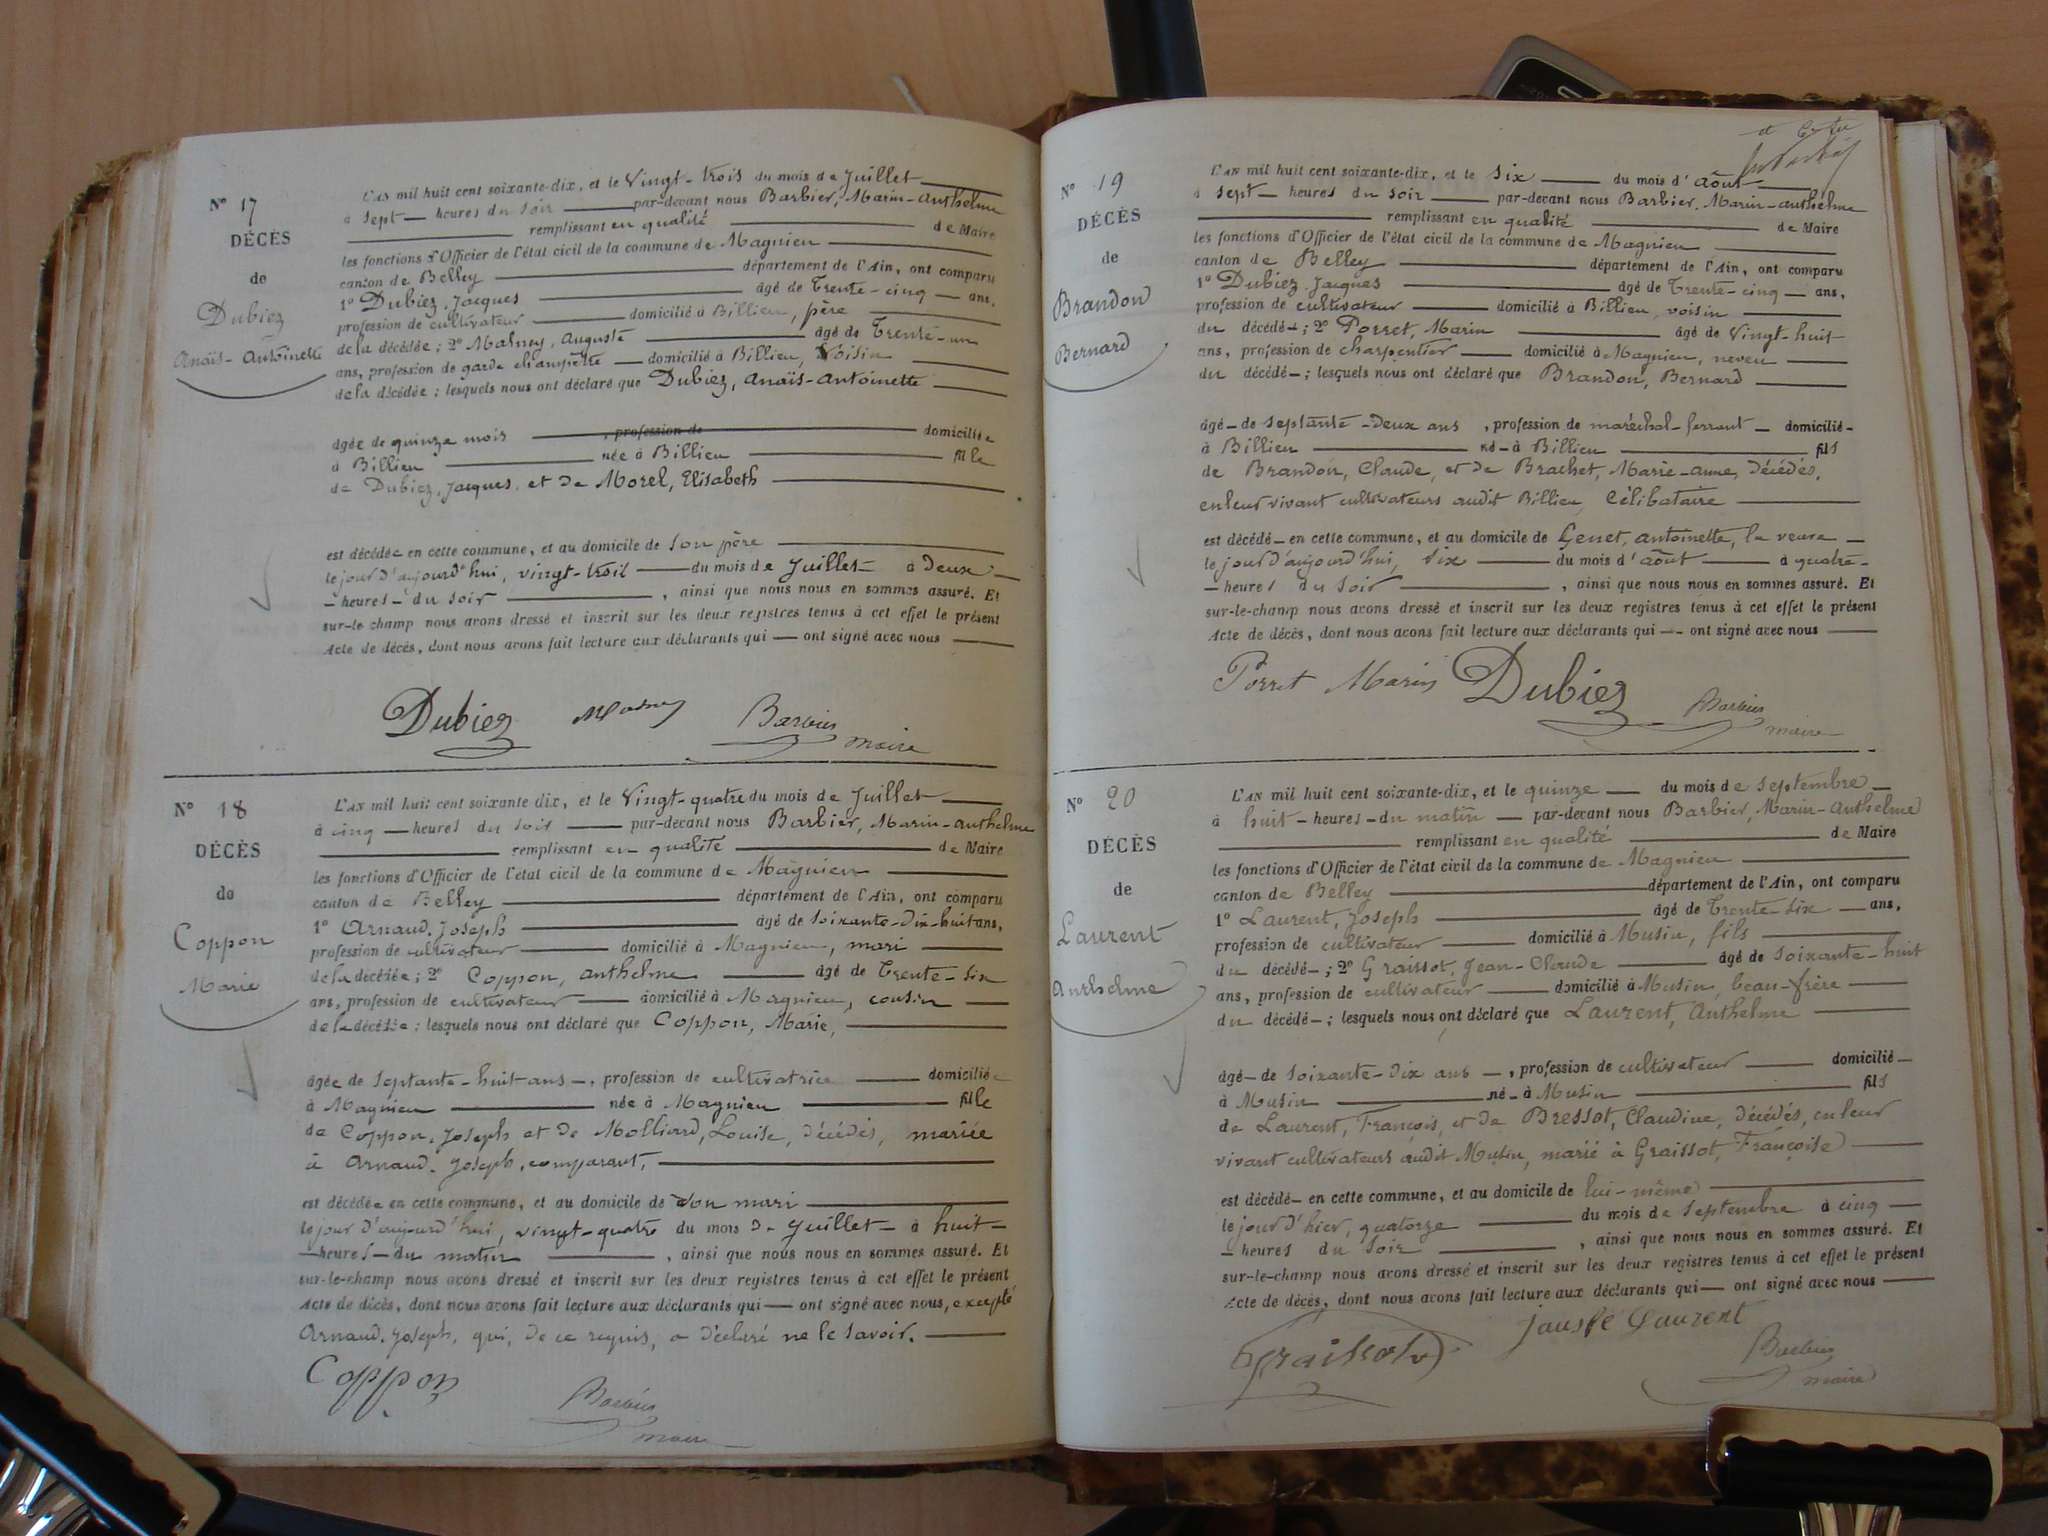 N° 17
DÉCÈS
de
Dubiez
Anaïs-Antoinette
L'AN mil huit cent soixante-dix, et le Vingt-trois du mois de Juillet
à sept heures du soir par-devant nous Barbier, Marin-Anthelme
remplissant en qualité de Maire
les fonctions d'Officier de l'état civil de la commune de Magnieu
canton de Belley département de l'Ain, ont comparu
1° Dubiez, Jacques âgé de Trente-cinq ans,
profession de cultivateur domicilié à Billieu, père
de la décédée; 2° Auguste âgé de Trente-un
ans, profession de garde champêtre domicilié à Billieu, Voisin
de la décédée; lesquels nous ont déclaré que Dubiez, Anaïs-Antoinette
âgée de quinze mois , profession de domiciliée
à Billieu née à Billieu fille
de Dubiez, Jacques, et de Morel, Elisabeth
est décédée en cette commune, et au domicile de son père
le jour d'aujourd'hui, vingt-trois du mois de Juillet à deux
heures du soir , ainsi que nous nous en sommes assuré. Et
sur-le champ nous avons dressé et inscrit sur les deux registres tenus à cet effet le présent
Acte de décès, dont nous avons fait lecture aux déclarants qui ont signé avec nous
Dubiez Barbier
maire
N° 18
DÉCÈS
de
Coppon
Marie
L'AN mil huit cent soixante-dix, et le Vingt-quatre du mois de Juillet
à cinq heures du soir par-devant nous Barbier, Marin-Anthelme
remplissant en qualité de Maire
les fonctions d'Officier de l'état civil de la commune de Magnieu
canton de Belley département de l'Ain, ont comparu
1° Arnaud, Joseph âgé de soixante-dix-huit ans,
profession de cultivateur domicilié à Magnieu, mari
de la décédée; 2° Coppon, Anthelme âgé de Trente-six
ans, profession de cultivateur domicilié à Magnieu, cousin
de la décédée; lesquels nous ont déclaré que Coppon, Marie,
âgée de septante-huit ans , profession de cultivatrice domiciliée
à Magnieu née à Magnieu fille
de Coppon, Joseph et de Molliard, Louise, décédés, mariée
à Arnaud, Joseph, comparant,
est décédée en cette commune, et au domicile de son mari
le jour d'aujourd'hui, vingt-quatre du mois de Juillet à huit
heures du matin , ainsi que nous nous en sommes assuré. Et
sur-le-champ nous avons dressé et inscrit sur les deux registres tenus à cet effet le présent
Acte de décès, dont nous avons fait lecture aux déclarants qui ont signé avec nous, excepté
Arnaud, Joseph, qui, de ce requis, a déclaré ne le savoir.
Coppon
Barbier
maire
N° 19
DÉCÈS
de
Brandon
Bernard
L'AN mil huit cent soixante-dix, et le six du mois d'août
à sept heures du soir par-devant nous Barbier, Marin-Anthelme
remplissant en qualité de Maire
les fonctions d'Officier de l'état civil de la commune de Magnieu
canton de Belley département de l'Ain, ont comparu
1° Dubiez, Jacques âgé de Trente-cinq ans,
profession de cultivateur domicilié à Billieu, voisin
du décédé; 2° Porret, Marin âgé de vingt-huit
ans, profession de charpentier domicilié à Magnieu, neveu
du décédé; lesquels nous ont déclaré que Brandon, Bernard
âgé de septante-deux ans , profession de maréchal-ferrant domicilié
à Billieu né à Billieu fils
de Brandon, Claude, et de Brachet, Marie-Anne, décédés,
en leur vivant cultivateurs audit Billieu, Célibataire
est décédé en cette commune, et au domicile de Genet, Antoinette, la veuve
le jour d'aujourd'hui, six du mois d'août à quatre
heures du soir , ainsi que nous nous en sommes assuré. Et
sur-le-champ nous avons dressé et inscrit sur les deux registres tenus à cet effet le présent
Acte de décès, dont nous avons fait lecture aux déclarants qui ont signé avec nous
Porret Marin Dubiez Barbier
maire
N° 20
DÉCÈS
de
Laurent
Anthelme
L'AN mil huit cent soixante-dix, et le quinze du mois de septembre
à huit heures du matin par-devant nous Barbier, Marin-Anthelme
remplissant en qualité de Maire
les fonctions d'Officier de l'état civil de la commune de Magnieu
canton de Belley département de l'Ain, ont comparu
1° Laurent, Joseph âgé de Trente-six ans,
profession de cultivateur domicilié à Musin, fils
du décédé; 2° Graissot, Jean-Claude âgé de soixante-huit
ans, profession de cultivateur domicilié à Musin, beau-frère
du décédé; lesquels nous ont déclaré que Laurent, Anthelme
âgé de soixante-dix ans , profession de cultivateur domicilié
à Musin né à Musin fils
de Laurent, François, et de Bressot, Claudine, décédés, en leur
vivant cultivateurs audit Musin, marié à Graissot, Françoise
est décédé en cette commune, et au domicile de lui-même
le jour d'hier, quatorze du mois de septembre à cinq
heures du soir , ainsi que nous nous en sommes assuré. Et
sur-le-champ nous avons dressé et inscrit sur les deux registres tenus à cet effet le présent
Acte de décès, dont nous avons fait lecture aux déclarants qui ont signé avec nous
Laurent
Barbier
maire